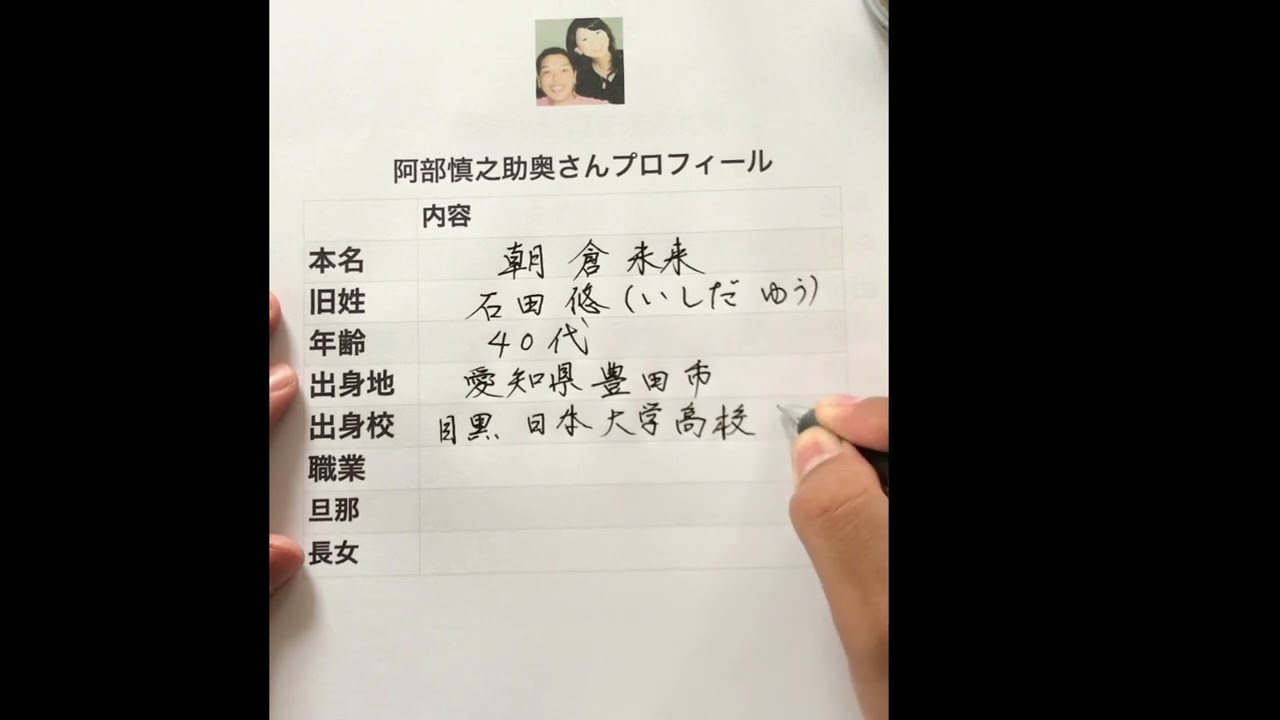 阿部慎之助奥さんプロフィール
内容
本名 朝倉未来
旧姓 石田悠(いしだ ゆう)
年齢 40代
出身地 愛知県豊田市
出身校 目黒日本大学高校
職業
旦那
長女